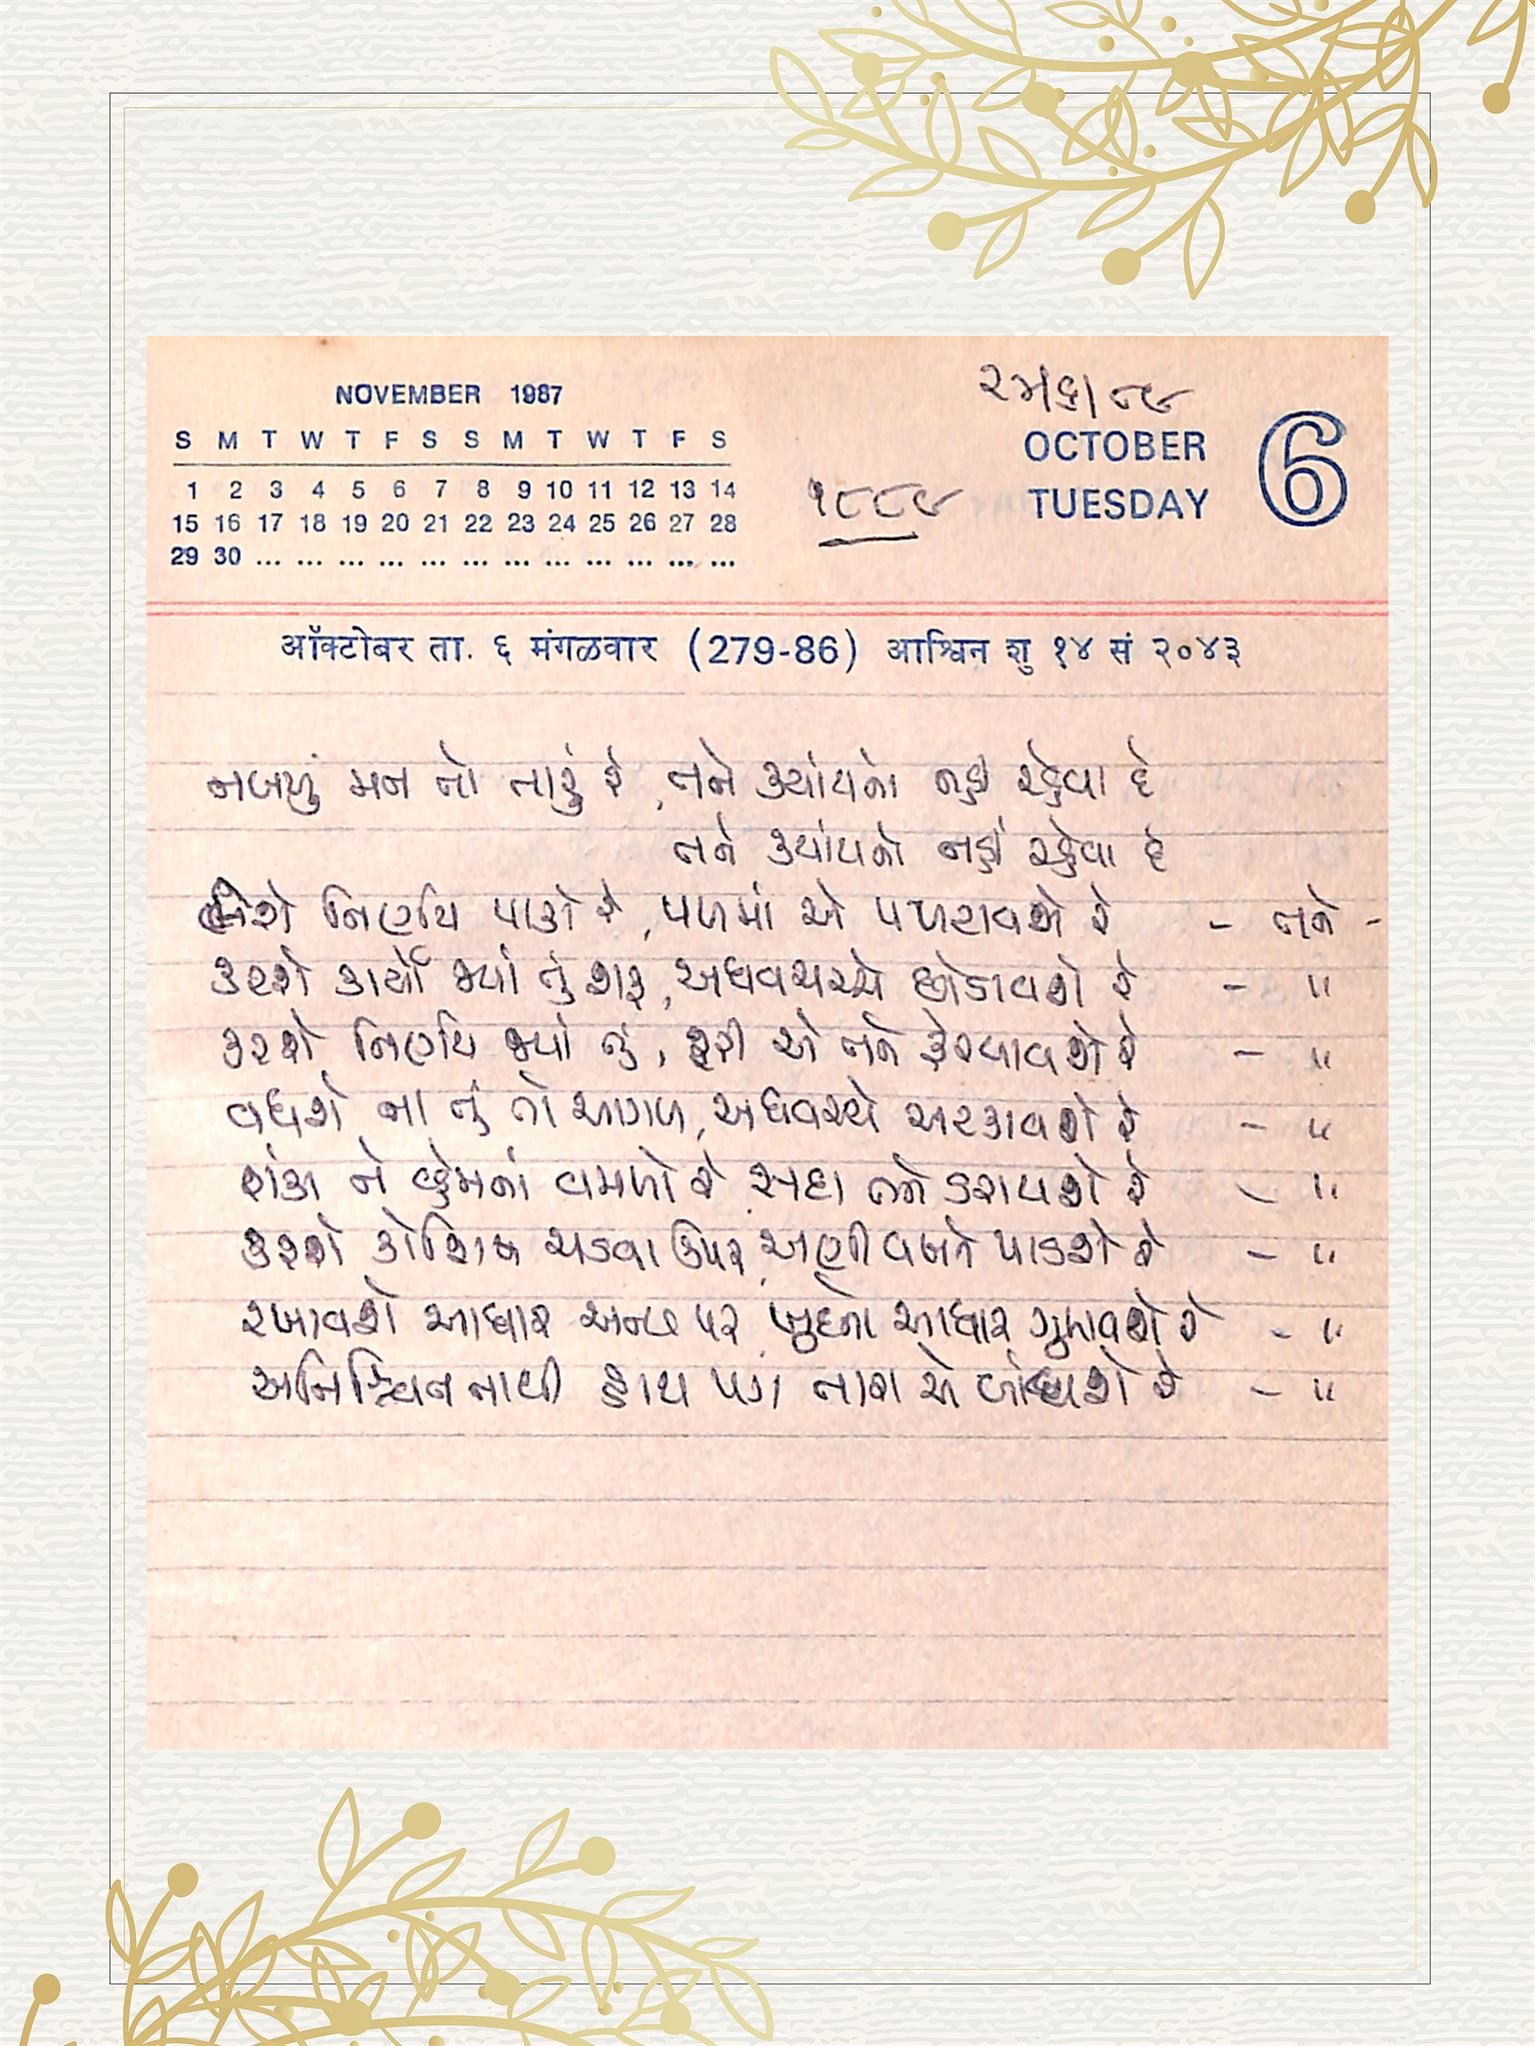 NOVEMBER 1987
S M T W T F S S M T W T F S
1 2 3 4 5 6 7 8 9 10 11 12 13 14
15 16 17 18 19 20 21 22 23 24 25 26 27 28
29 30 ... ... ... ... ... ... ... ... ... ... ... ...
૨૫/૬/૮૯
૧૮૮૯
OCTOBER
TUESDAY
6
ऑक्टोबर ता. ६ मंगळवार (279-86) आश्विन शु १४ सं २०४३
નબળું મન તો તારું રે, તને ક્યાંયનો નહીં રહેવા દે
તને ક્યાંયનો નહીં રહેવા દે
લેશે નિર્ણય પાકો રે, પળમાં એ પલટાવશે રે - તને -
કરશે કાર્યો જ્યાં તું શરૂ, અધવચ્ચે છોડાવશે રે - "
કરશે નિર્ણય જ્યાં તું, ફરી એ તને ફેરવાવશે રે - "
વધશે ના તું તો આગળ, અધવચ્ચે અટકાવશે રે - "
શંકા ને વ્હેમનાં વમળો રે સદા તને કરાવશે રે - "
કરશે કોશિશ ચડવા ઉપર, અણી વખતે પાડશે રે - "
રખાવશે આધાર અન્ય પર, ખુદનો આધાર ગુમાવશે રે - "
અનિશ્ચિતતાથી હાથ પગ તારા એ બાંધશે રે - "